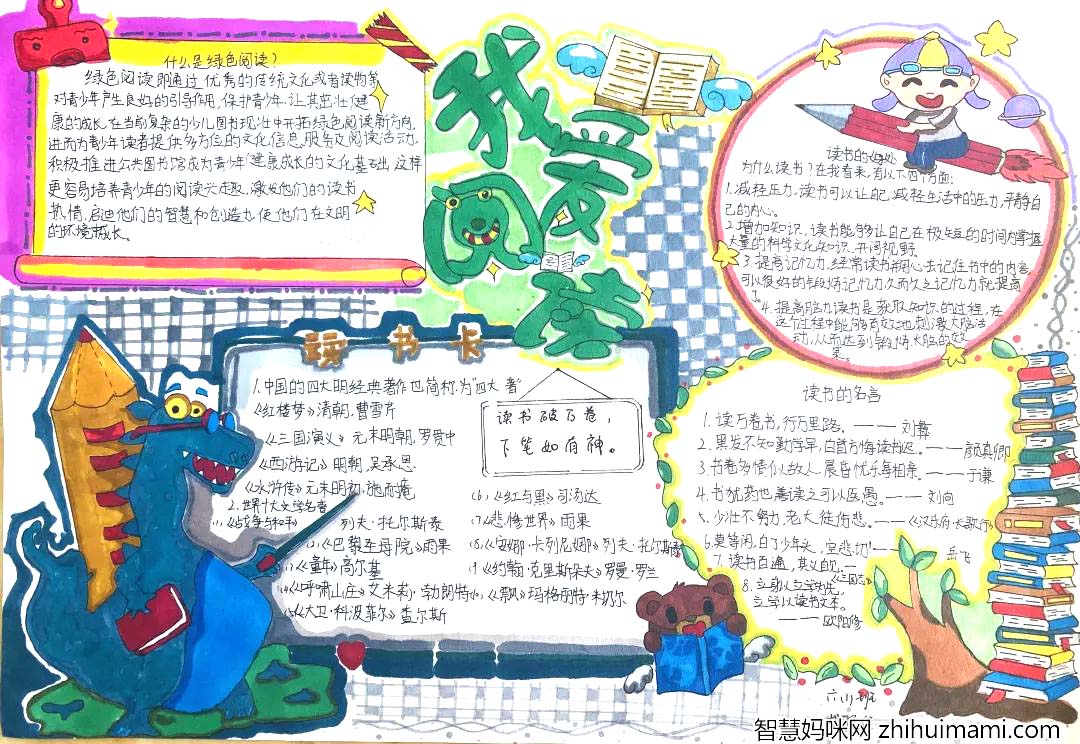 我爱阅读
什么是绿色阅读?
绿色阅读即通过优秀的传统文化或者读物等
对青少年产生良好的引导作用,保护青少年,让其茁壮健
康的成长,在当前复杂的少儿图书现状中开拓绿色阅读新方向,
进而为青少年读者提供多方位的文化信息服务及阅读活动,
积极推进公共图书馆成为青少年健康成长的文化基础,这样
更容易培养青少年的阅读兴趣,激发他们的读书
热情,启迪他们的智慧和创造力,使他们在文明
的环境成长。
读书的好处
为什么读书?在我看来,有以下四个方面:
1.减轻压力,读书可以让自己减轻生活中的压力,平静自
己的内心。
2.增加知识,读书能够让自己在极短的时间内掌握
大量的科学文化知识,开阔视野。
3.提高记忆力,经常读书并用心去记住书中的内容,
可以很好的锻炼记忆力,久而久之记忆力就提高
了。
4.提高脑力,读书是获取知识的过程,在
这个过程中能够有效地刺激大脑活
动,从而达到锻炼大脑的效
果。
读书卡
1.中国的四大明经典著作也简称为"四大著"
《红楼梦》清朝.曹雪芹
《三国演义》元末明朝,罗贯中
《西游记》明朝,吴承恩
《水浒传》元末明初,施耐庵
2.世界十大文学名著
《战争与和平》 列夫·托尔斯泰
《巴黎圣母院》雨果
《童年》高尔基
《呼啸山庄》艾米莉·勃朗特
《大卫·科波菲尔》查尔斯
读书破万卷,
下笔如有神。
(6,《红与黑》司汤达
(7《悲惨世界》雨果
(8,《安娜·卡列尼娜》列夫·托尔斯泰
(9《约翰·克里斯朵夫》罗曼·罗兰
《飘》玛格丽特·米切尔
读书的名言
1.读万卷书,行万里路。——刘彝
2.黑发不知勤学早,白首方悔读书迟。——颜真卿
3.书卷多情似故人,晨昏忧乐每相亲。——于谦
4.书犹药也,善读之可以医愚。——刘向
5.少壮不努力,老大徒伤悲。——《汉乐府·长歌行》
6.莫等闲,白了少年头,空悲切!—— 岳飞
7.读书百遍,其义自见。—
《三国志》
8.立身以立学为先,
立学以读书为本。
——欧阳修
六(1)班
智慧妈咪网 zhihuimami.com